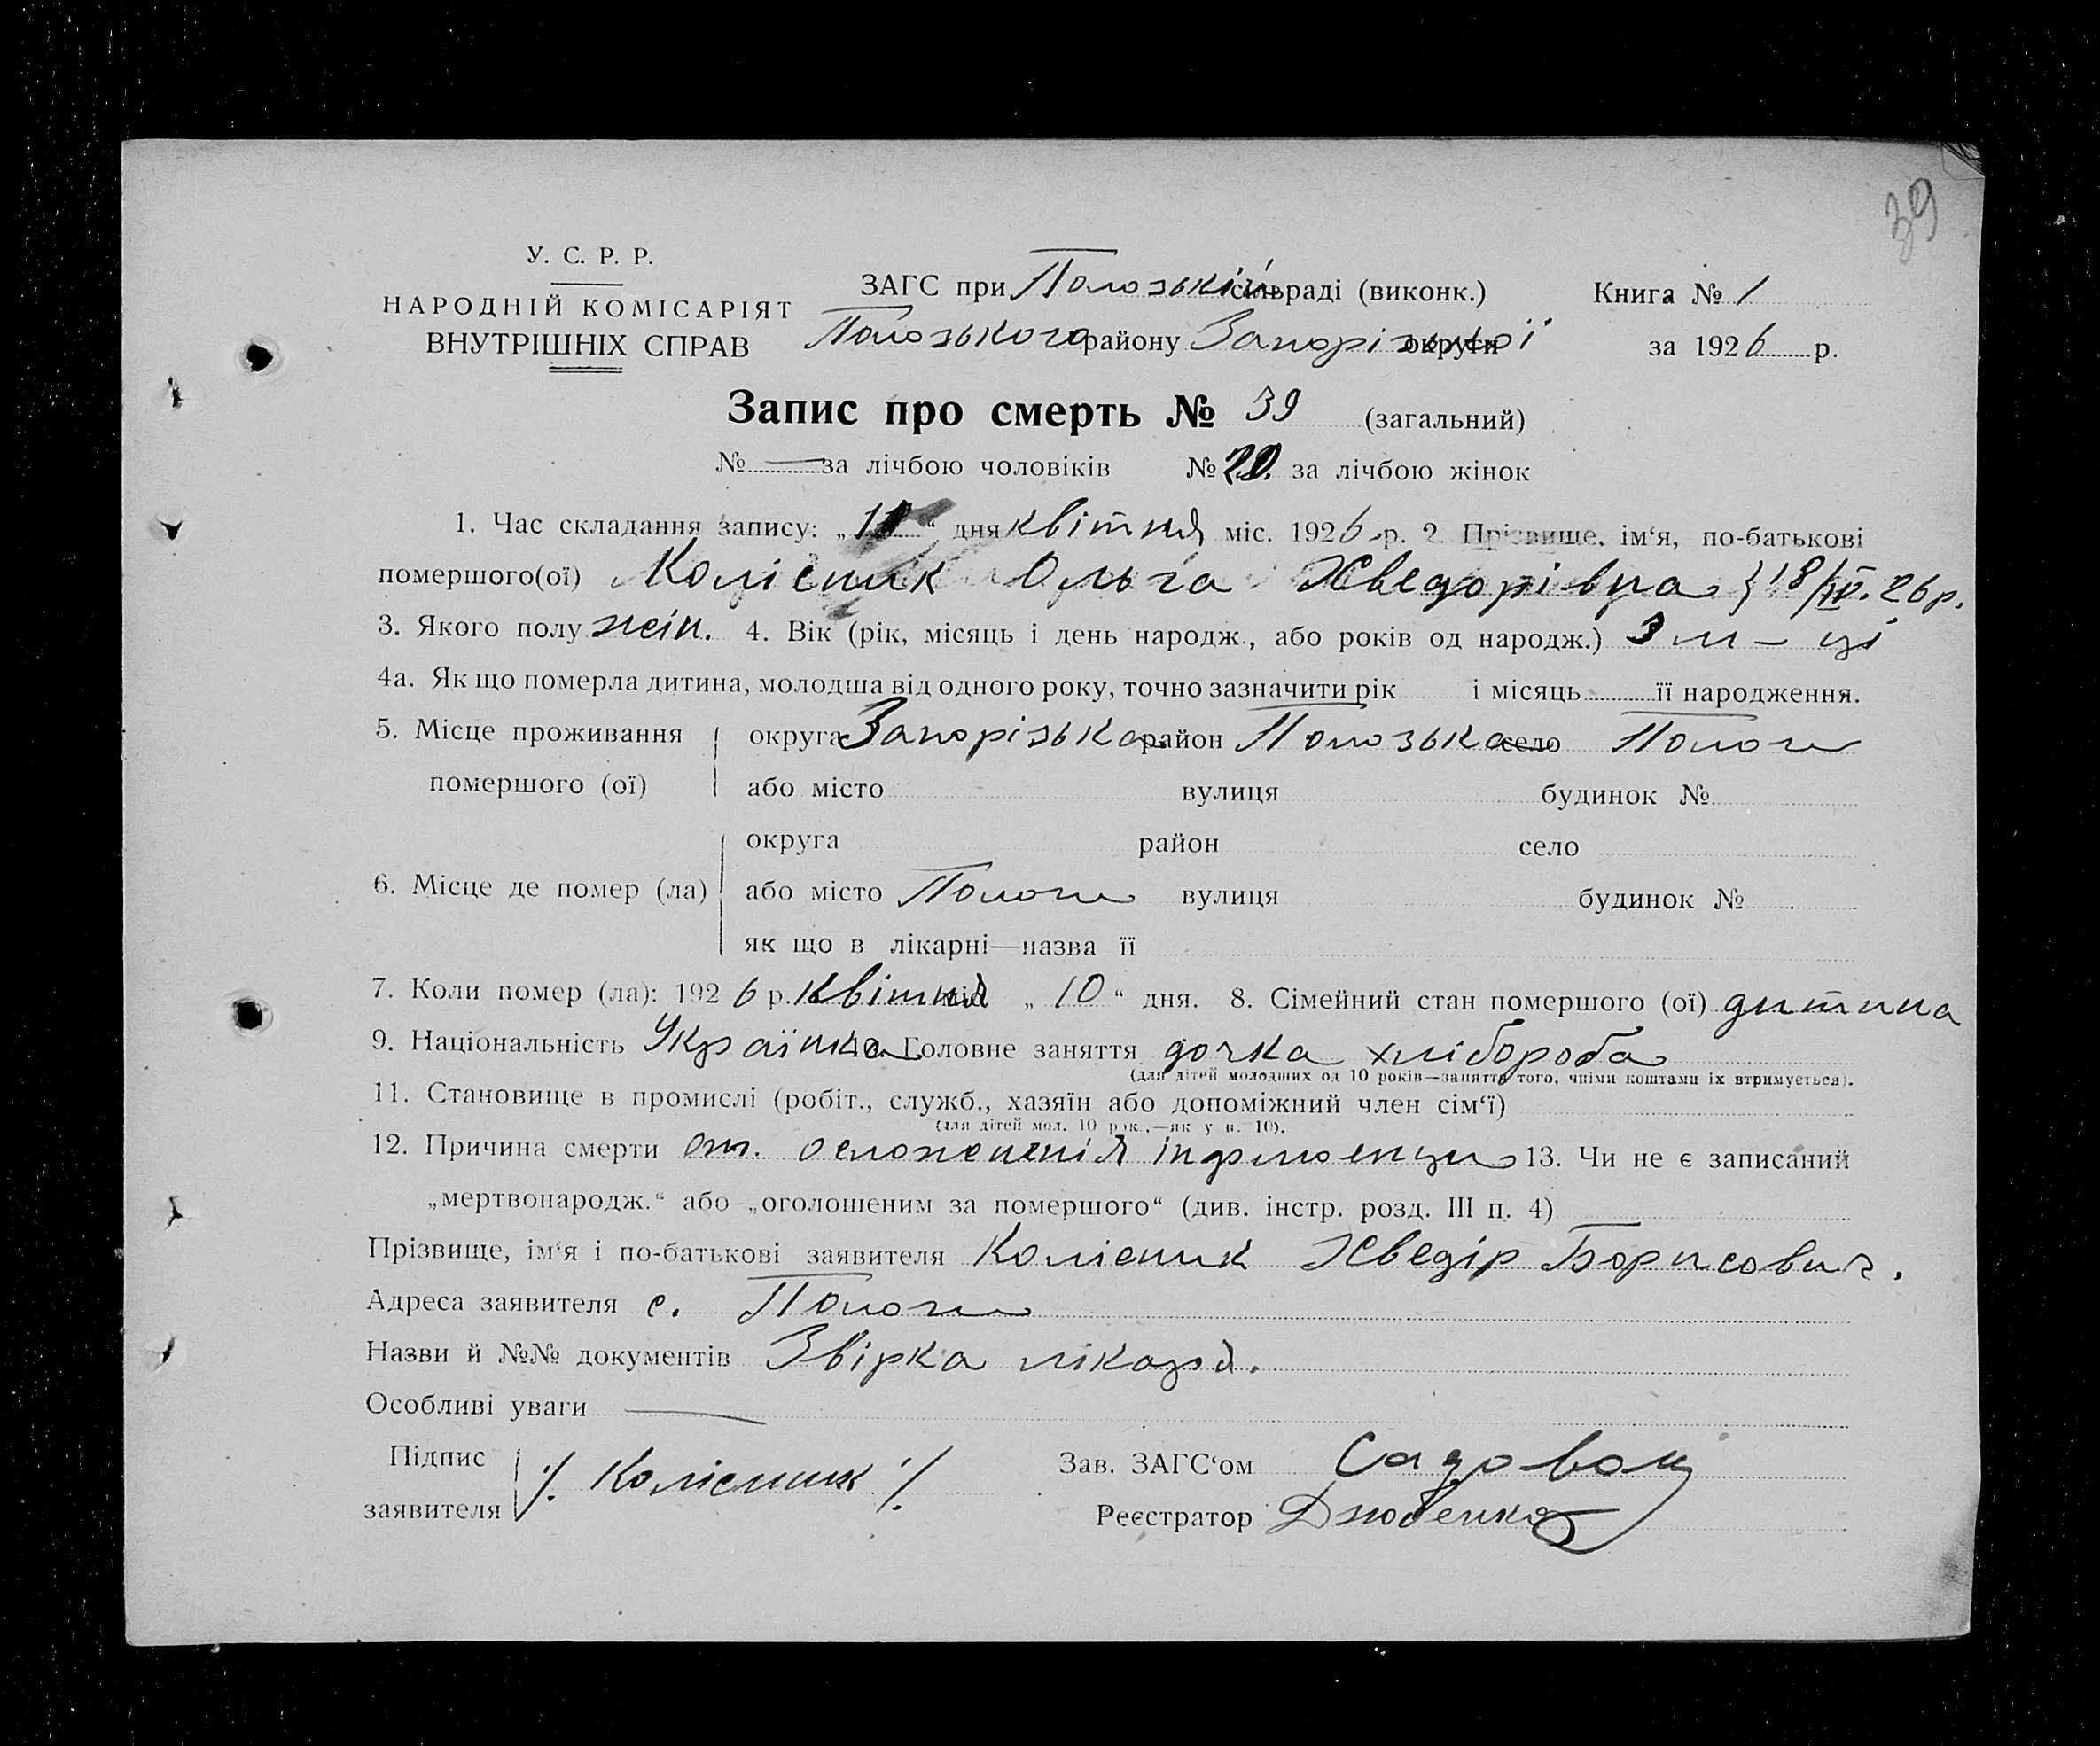 39
У. С. Р. Р.
НАРОДНІЙ КОМІСАРІЯТ
ВНУТРІШНІХ СПРАВ
ЗАГС при Полозькій сільраді (виконк.)
Полозького району Запорізької округи
Книга № 1
за 1926 р.
Запис про смерть № 39 (загальний)
№ — за лічбою чоловіків № 20. за лічбою жінок
1. Час складання запису: „ “ дня квітня міс. 1926 р. 2. Прізвище, ім‘я, по-батькові
помершого(ої) Колісник Ольга Хведорівна } 18/IV. 26 р.
3. Якого полу жін. 4. Вік (рік, місяць і день народж., або років од народж.) 3 м – ці
4а. Як що померла дитина, молодша від одного року, точно зазначити рік і місяць її народження.
5. Місце проживання помершого (ої) округа Запорізька район Полозька село Пологи
або місто вулиця будинок №
6. Місце де помер (ла) округа район село
або місто Пологи вулиця будинок №
як що в лікарні—назва її
7. Коли помер (ла): 1926 р. квітня міс. „ 10 “ дня. 8. Сімейний стан помершого (ої) дитина
9. Національність Українка 10. Головне заняття дочка хлібороба
(для дітей молодших од 10 років—заняття того, чиїми коштами їх втримується).
11. Становище в промислі (робіт., служб., хазяїн або допоміжний член сім‘ї)
(для дітей мол. 10 рок.,—як у п. 10).
12. Причина смерти от. осложненія інфлюенци 13. Чи не є записаний
„мертвонародж.“ або „оголошеним за помершого“ (див. інстр. розд. III п. 4)
Прізвище, ім‘я і по-батькові заявителя Колісник Хведір Борисович.
Адреса заявителя с. Пологи
Назви й №№ документів Звірка лікаря.
Особливі уваги —
Підпис заявителя ./. Колісник ./.
Зав. ЗАГС‘ом Садовой
Реєстратор Дзюбенко